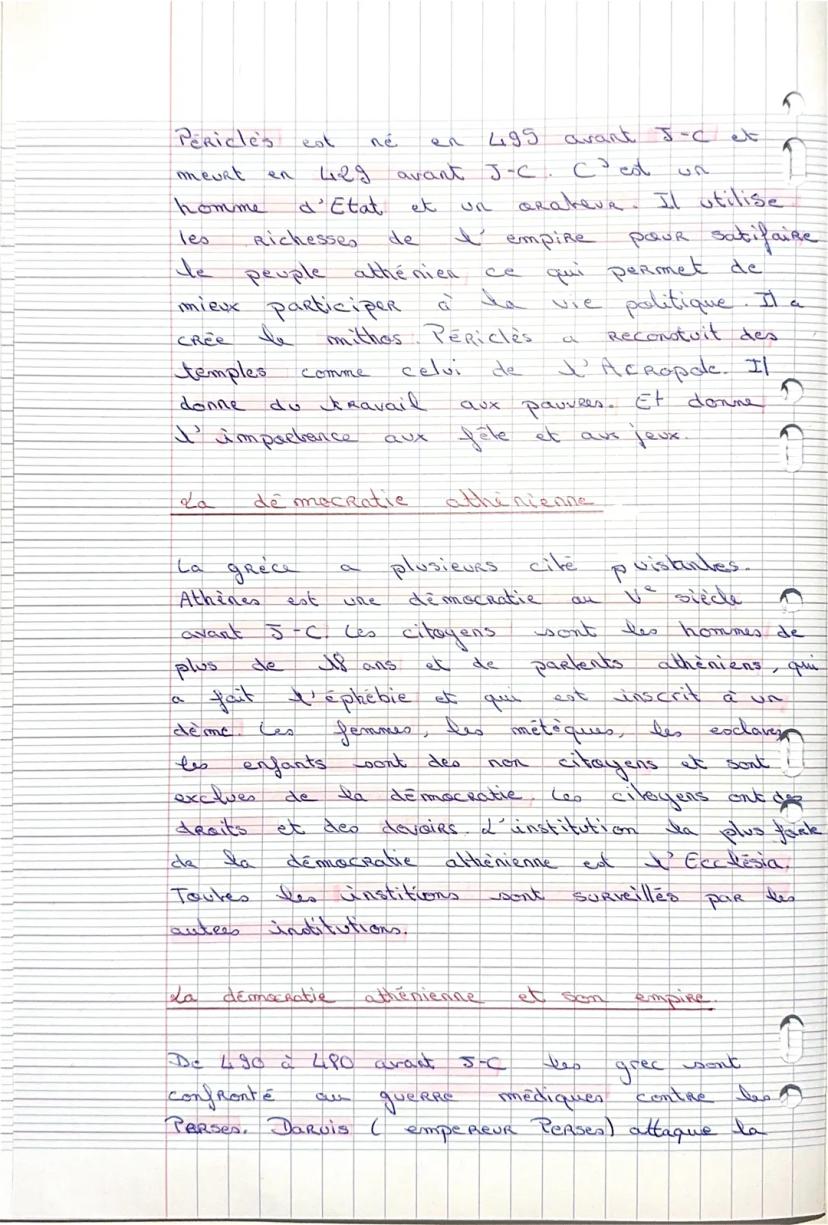 Périclès est né en 495 avant J-C et
meurt en 429 avant J-C. C'est un
homme d'Etat et un orateur. Il utilise
les richesses de l'empire pour satifaire
le peuple athénien ce qui permet de
mieux participer à la vie politique. Il a
crée la mithos. Périclès a reconstuit des
temples comme celui de l'Acropole. Il
donne du travail aux pauvres. Et donne
l'importance aux fête et aux jeux.
La démocratie athénienne
La grèce a plusieurs cité puistantes.
Athènes est une démocratie au Ve siècle
avant J-C. Les citoyens sont les hommes de
plus de 18 ans et de partents athéniens, qui
a fait l'éphébie et qui est inscrit à un
dème. Les femmes, les métèques, les esclaves
les enfants sont des non citoyens et sont
exclues de la démocratie. Les citoyens ont des
droits et des devoirs. L'institution la plus forte
de la démocratie athénienne est l'Ecclésia.
Toutes les institions sont surveillés par les
autres institutions.
La démocratie athénienne et son empire.
De 490 à 480 avant J-C les grec sont
confronté au guerre médiques contre les
Perses. Daruis (empereur Perses) attaque la